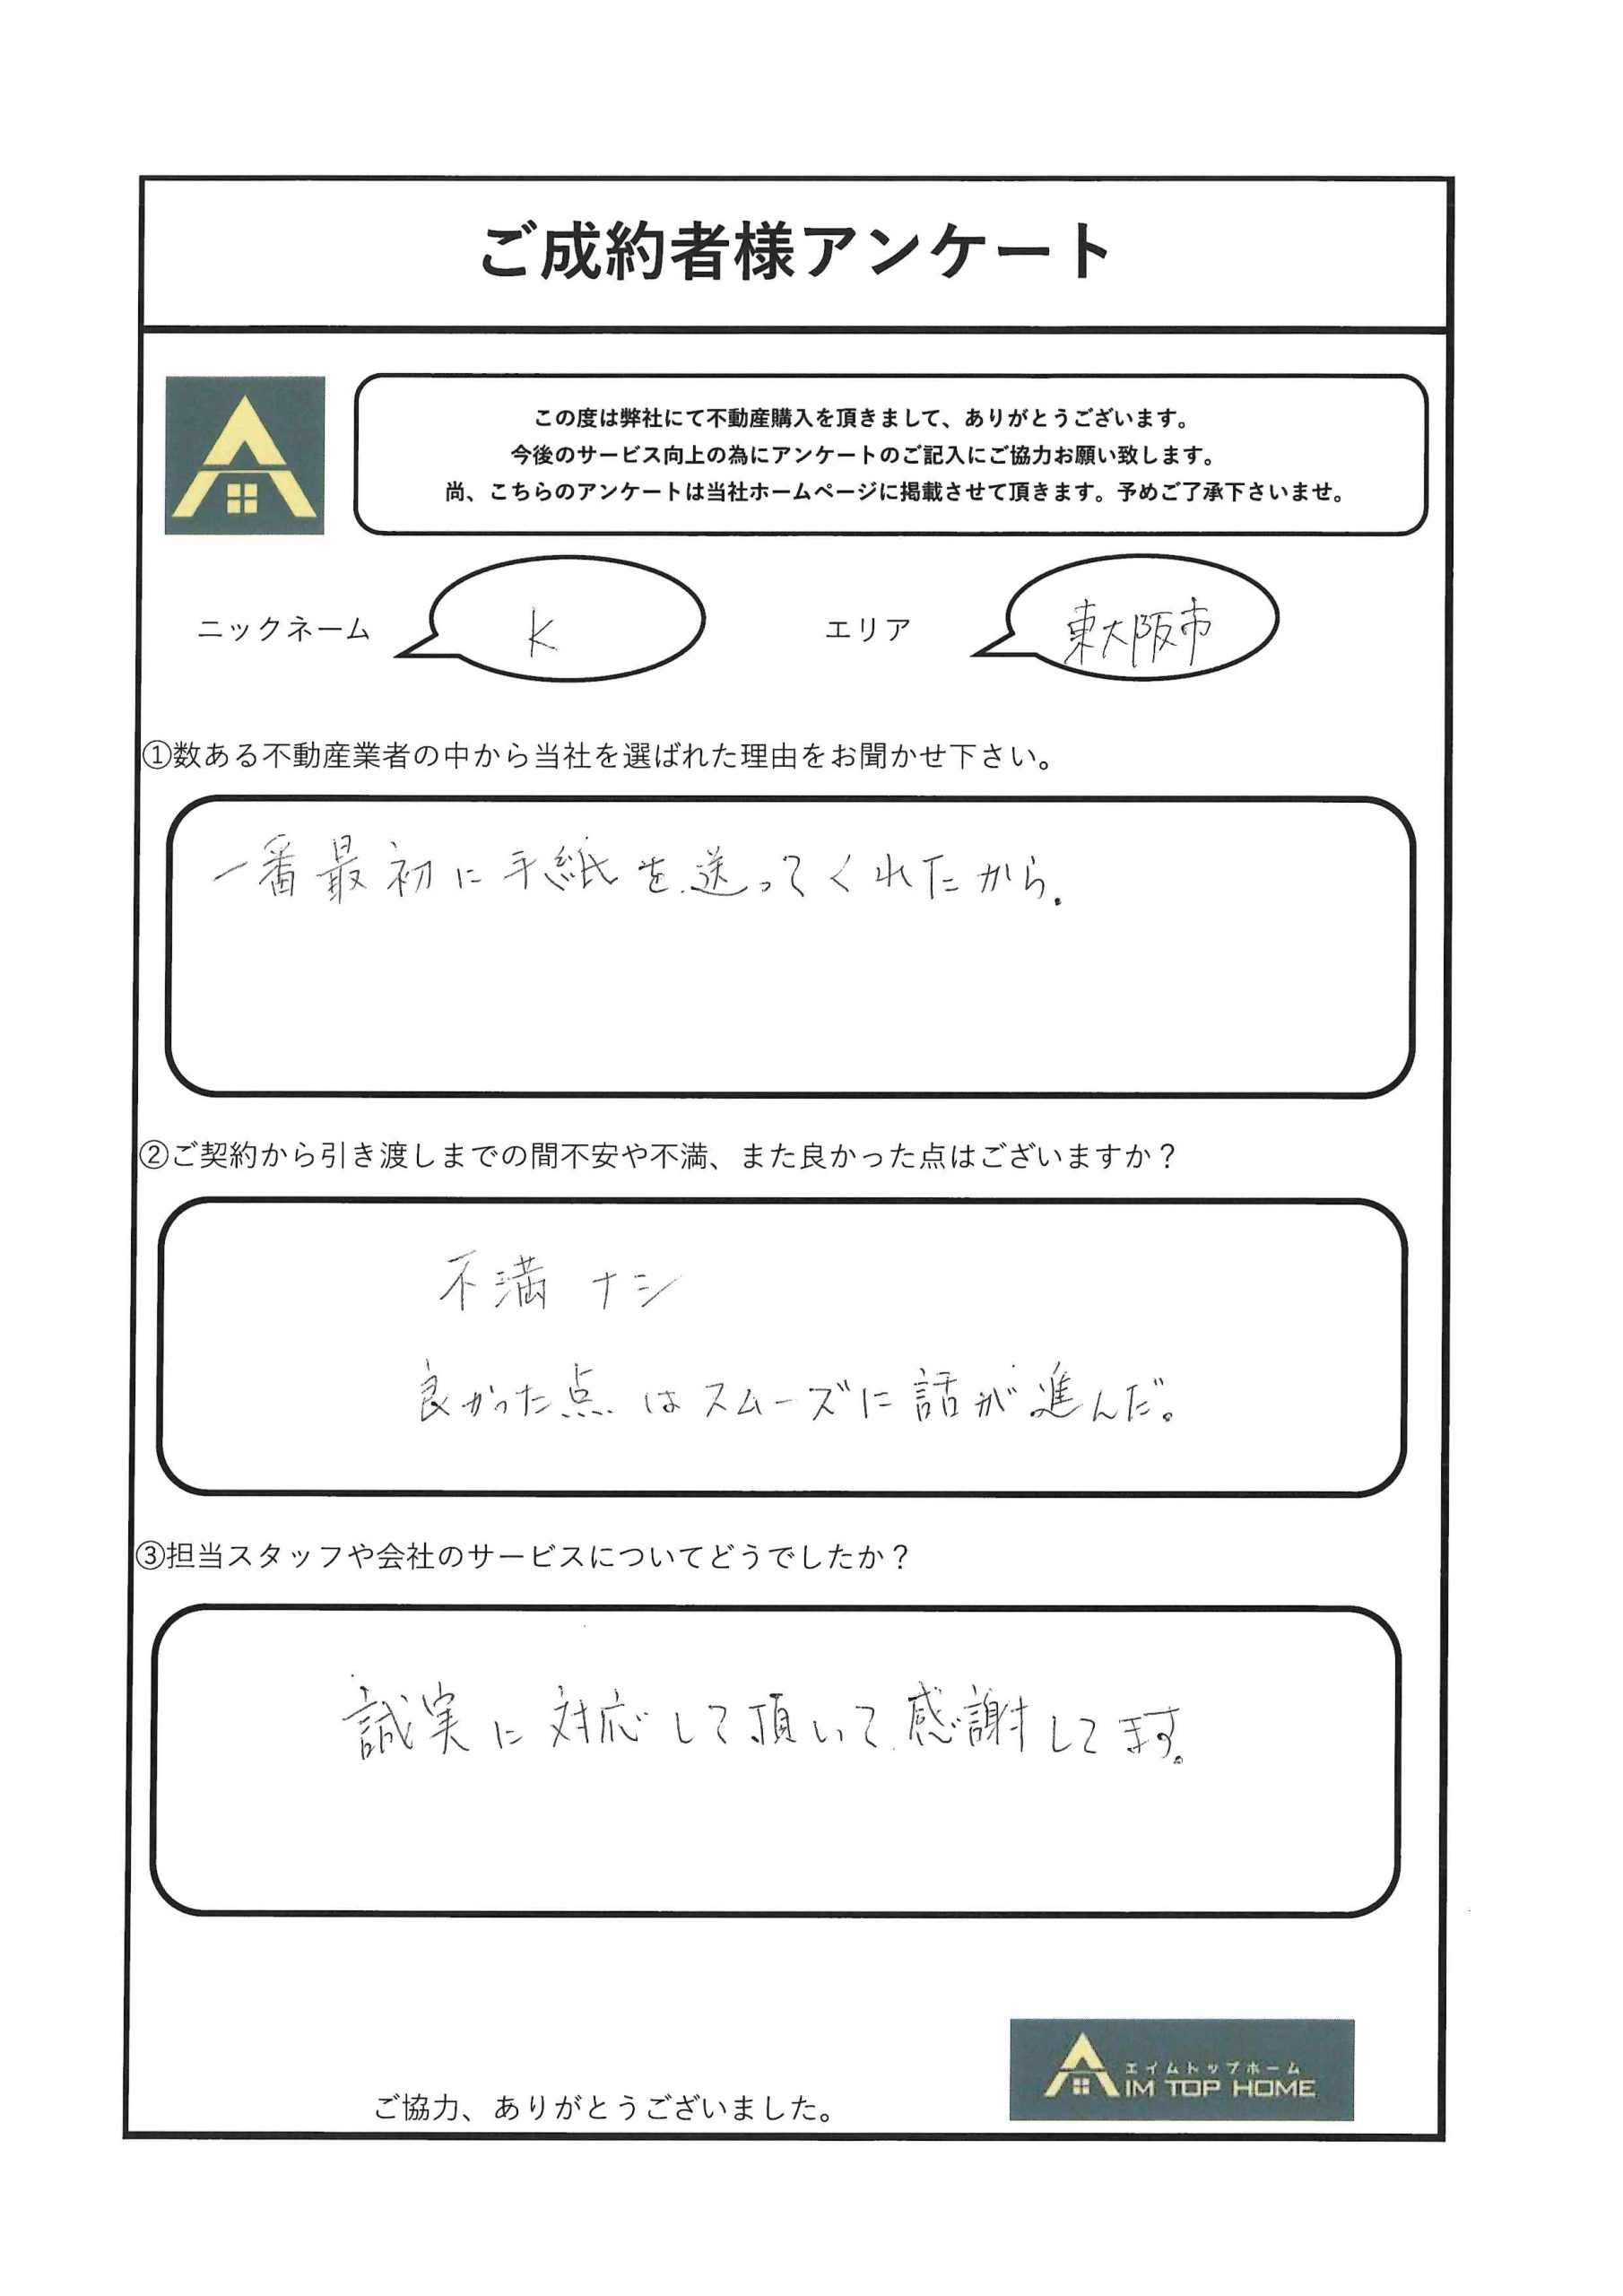 ご成約者様アンケート
この度は弊社にて不動産購入を頂きまして、ありがとうございます。
今後のサービス向上の為にアンケートのご記入にご協力お願い致します。
尚、こちらのアンケートは当社ホームページに掲載させて頂きます。予めご了承下さいませ。
ニックネーム K エリア 東大阪市
①数ある不動産業者の中から当社を選ばれた理由をお聞かせ下さい。
一番最初に手紙を送ってくれたから.
②ご契約から引き渡しまでの間不安や不満、また良かった点はございますか？
不満 ナシ
良かった点はスムーズに話が進んだ。
③担当スタッフや会社のサービスについてどうでしたか？
誠実に対応して頂いて感謝してます。
エイムトップホーム
AIM TOP HOME
ご協力、ありがとうございました。